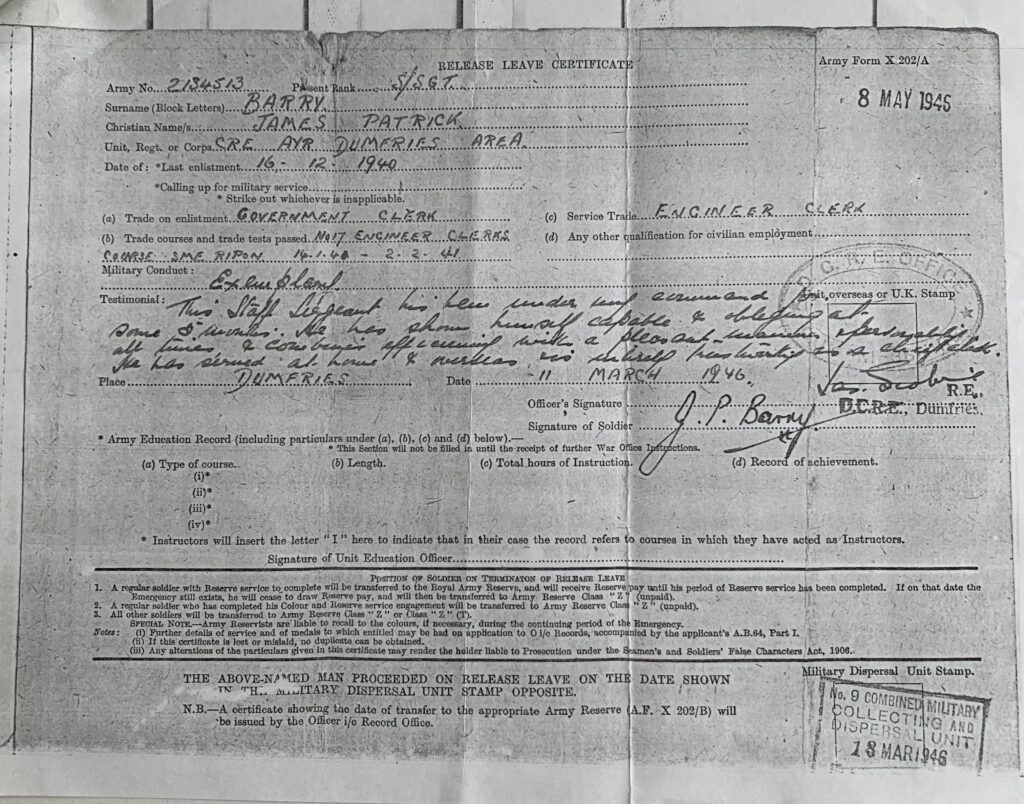 RELEASE LEAVE CERTIFICATE
Army Form X 202/A
8 MAY 1946
Army No. 2134513 Present Rank S/SGT.
Surname (Block Letters) BARRY
Christian Name/s JAMES PATRICK
Unit, Regt. or Corps. CRE AYR DUMFRIES AREA
Date of : *Last enlistment 16 - 12 - 1940
*Calling up for military service
* Strike out whichever is inapplicable.
(a) Trade on enlistment GOVERNMENT CLERK (c) Service Trade ENGINEER CLERK
(b) Trade courses and trade tests passed No 17 ENGINEER CLERKS (d) Any other qualification for civilian employment
COURSE SME RIPON 14.1.41 - 2.2.41
Military Conduct : Exemplary
C.R.E. OFFICE
Unit, overseas or U.K. Stamp
Testimonial : This Staff Sergeant has been under my command for
some 5 months. He has shown himself capable & obliging at
all times & combines efficiency with a pleasant manner & personality.
He has served at home & overseas is utterly trustworthy as a chief clerk.
Place DUMFRIES Date 11 MARCH 1946.
Officer's Signature R.E.,
D.C.R.E., Dumfries.
Signature of Soldier J. P. Barry
* Army Education Record (including particulars under (a), (b), (c) and (d) below).—
* This Section will not be filled in until the receipt of further War Office Instructions.
(a) Type of course. (b) Length. (c) Total hours of Instruction. (d) Record of achievement.
(i)*
(ii)*
(iii)*
(iv)*
* Instructors will insert the letter "I" here to indicate that in their case the record refers to courses in which they have acted as Instructors.
Signature of Unit Education Officer
POSITION OF SOLDIER ON TERMINATON OF RELEASE LEAVE
1. A regular soldier with Reserve service to complete will be transferred to the Royal Army Reserve, and will receive Reserve pay until his period of Reserve service has been completed. If on that date the
Emergency still exists, he will cease to draw Reserve pay, and will then be transferred to Army Reserve Class "Z" (unpaid).
2. A regular soldier who has completed his Colour and Reserve service engagement will be transferred to Army Reserve Class "Z" (unpaid).
3. All other soldiers will be transferred to Army Reserve Class "Z" or Class "Z" (T).
SPECIAL NOTE—Army Reservists are liable to recall to the colours, if necessary, during the continuing period of the Emergency.
Notes : (i) Further details of service and of medals to which entitled may be had on application to O i/c Records, accompanied by the applicant's A.B.64, Part I.
(ii) If this certificate is lost or mislaid, no duplicate can be obtained.
(iii) Any alterations of the particulars given in this certificate may render the holder liable to Prosecution under the Seamen's and Soldiers' False Characters Act, 1906.
THE ABOVE-NAMED MAN PROCEEDED ON RELEASE LEAVE ON THE DATE SHOWN
IN THE MILITARY DISPERSAL UNIT STAMP OPPOSITE.
N.B.—A certificate showing the date of transfer to the appropriate Army Reserve (A.F. X 202/B) will
be issued by the Officer i/c Record Office.
Military Dispersal Unit Stamp.
No. 9 COMBINED MILITARY
COLLECTING AND
DISPERSAL UNIT
13 MAR 1946